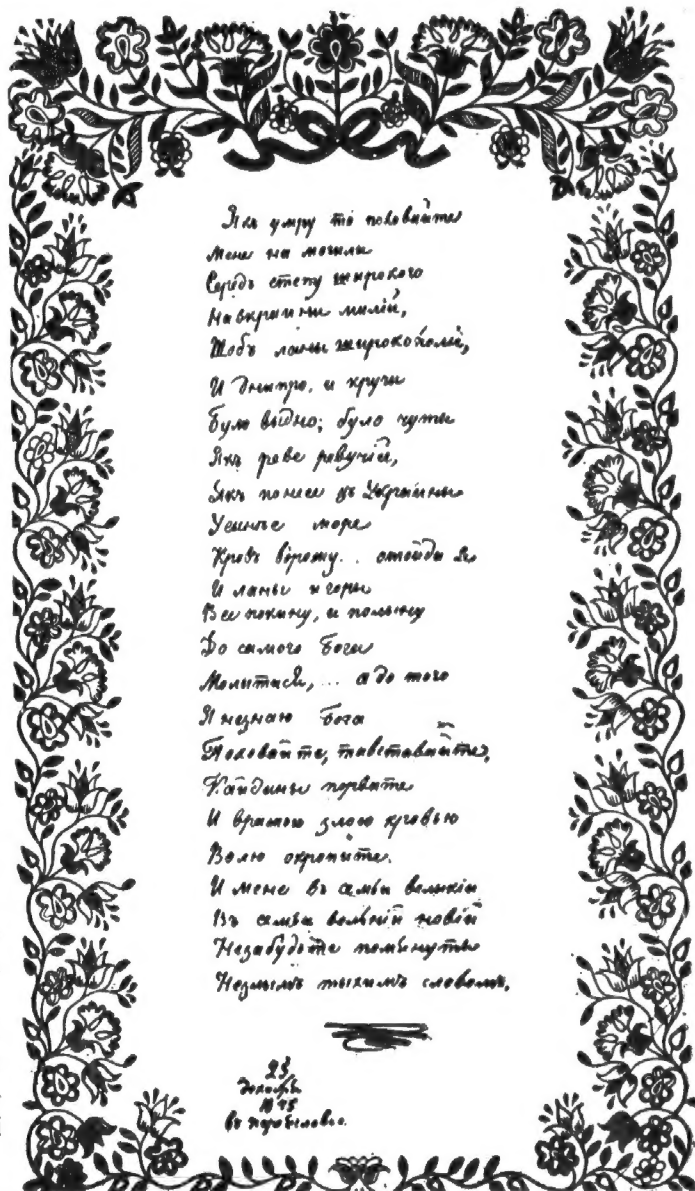 Якъ умру то поховайте
Мене на могили
Середъ степу широкого
На вкраини милій,
Щобъ ланы широкополи,
И Днипро, и кручи
Було выдно; було чуты
Якъ реве ревучій,
Якъ понесе зъ Украины
У синѣе море
Кровъ ворожу... отойди я
И ланы и горы
Все покину, и полыну
До самого Бога
Молитися,... а до того
Я незнаю Бога
Поховайте, тавставайте,
Кайданы порвите
И вражою злою кровью
Волю окропите.
И мене въ семьи великій
Въ семьи вольній новій
Незабудьте помянуты
Незлымъ тыхимъ словомъ.
25
Декабря
1845
въ Переяслови.